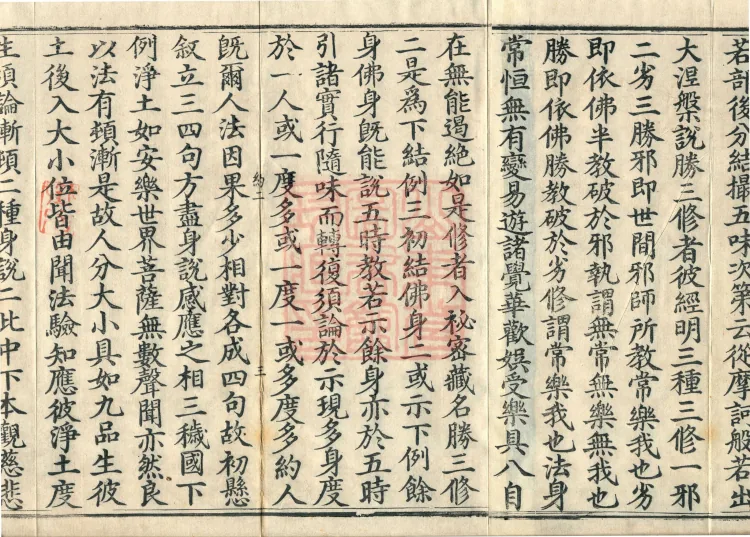 若部後分結撮五味次第云從摩訶般若出
大涅槃說勝三修者彼經明三種三修一邪
二劣三勝邪即世間邪師所教常樂我也劣
即依佛半教破於邪執謂無常無樂無我也
勝即依佛勝教破於劣修謂常樂我也法身
常恒無有變易遊諸覺華歡娛受樂具八自
在無能遏絕如是修者入秘密藏名勝三修
二是為下結例三初結佛身二或示下例餘
身佛身既能說五時教若示餘身亦於五時
引諸實行隨味而轉復須論於示現多身度
於一人或一度多或一度一或多度多約人
約二
三
既爾人法因果多少相對各成四句故初懸
叙立三四句方盡身說感應之相三穢國下
例淨土如安樂世界菩薩無數聲聞亦然良
以法有頓漸是故人分大小具如九品生彼
土後入大小位皆由聞法驗知應彼淨土度
生須論漸頓二種身說二比中下本觀慈悲